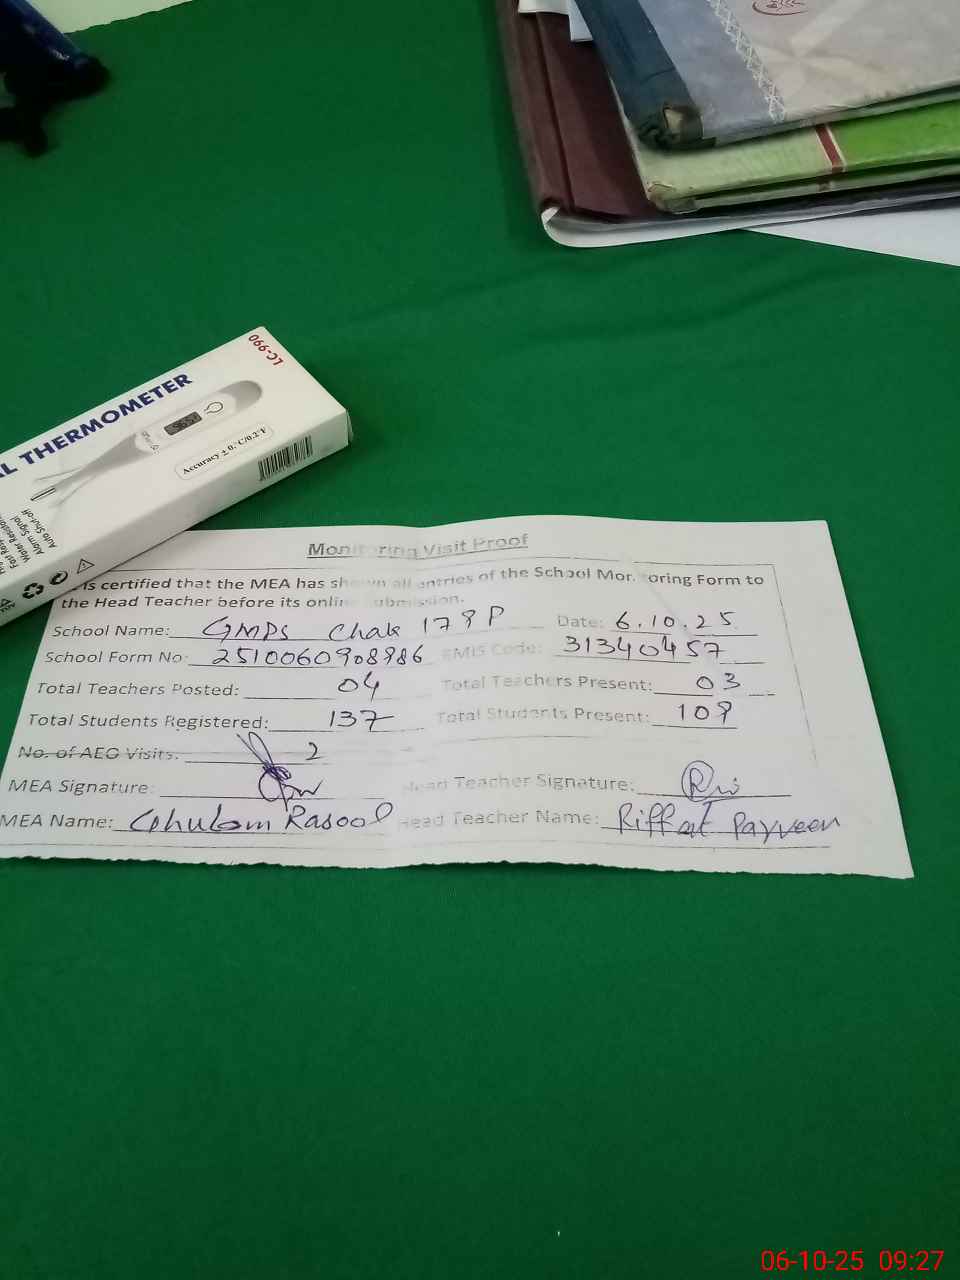 LC-990
AL THERMOMETER
Accuracy ± 0.°C/0.2°F
Water Resistant
Alarm Signal
Auto Shut-off
Monitoring Visit Proof
is certified that the MEA has shown all entries of the School Monitoring Form to
the Head Teacher before its online submission.
School Name: GMPS Chak 178 P Date: 6.10.25
School Form No: 2510060908986 EMIS Code: 31340457
Total Teachers Posted: 04 Total Teachers Present: 03
Total Students Registered: 137 Total Students Present: 108
No. of AEO Visits. 2
MEA Signature: Head Teacher Signature:
MEA Name: Ghulam Rasool Head Teacher Name: Riffat Parveen
06-10-25 09:27